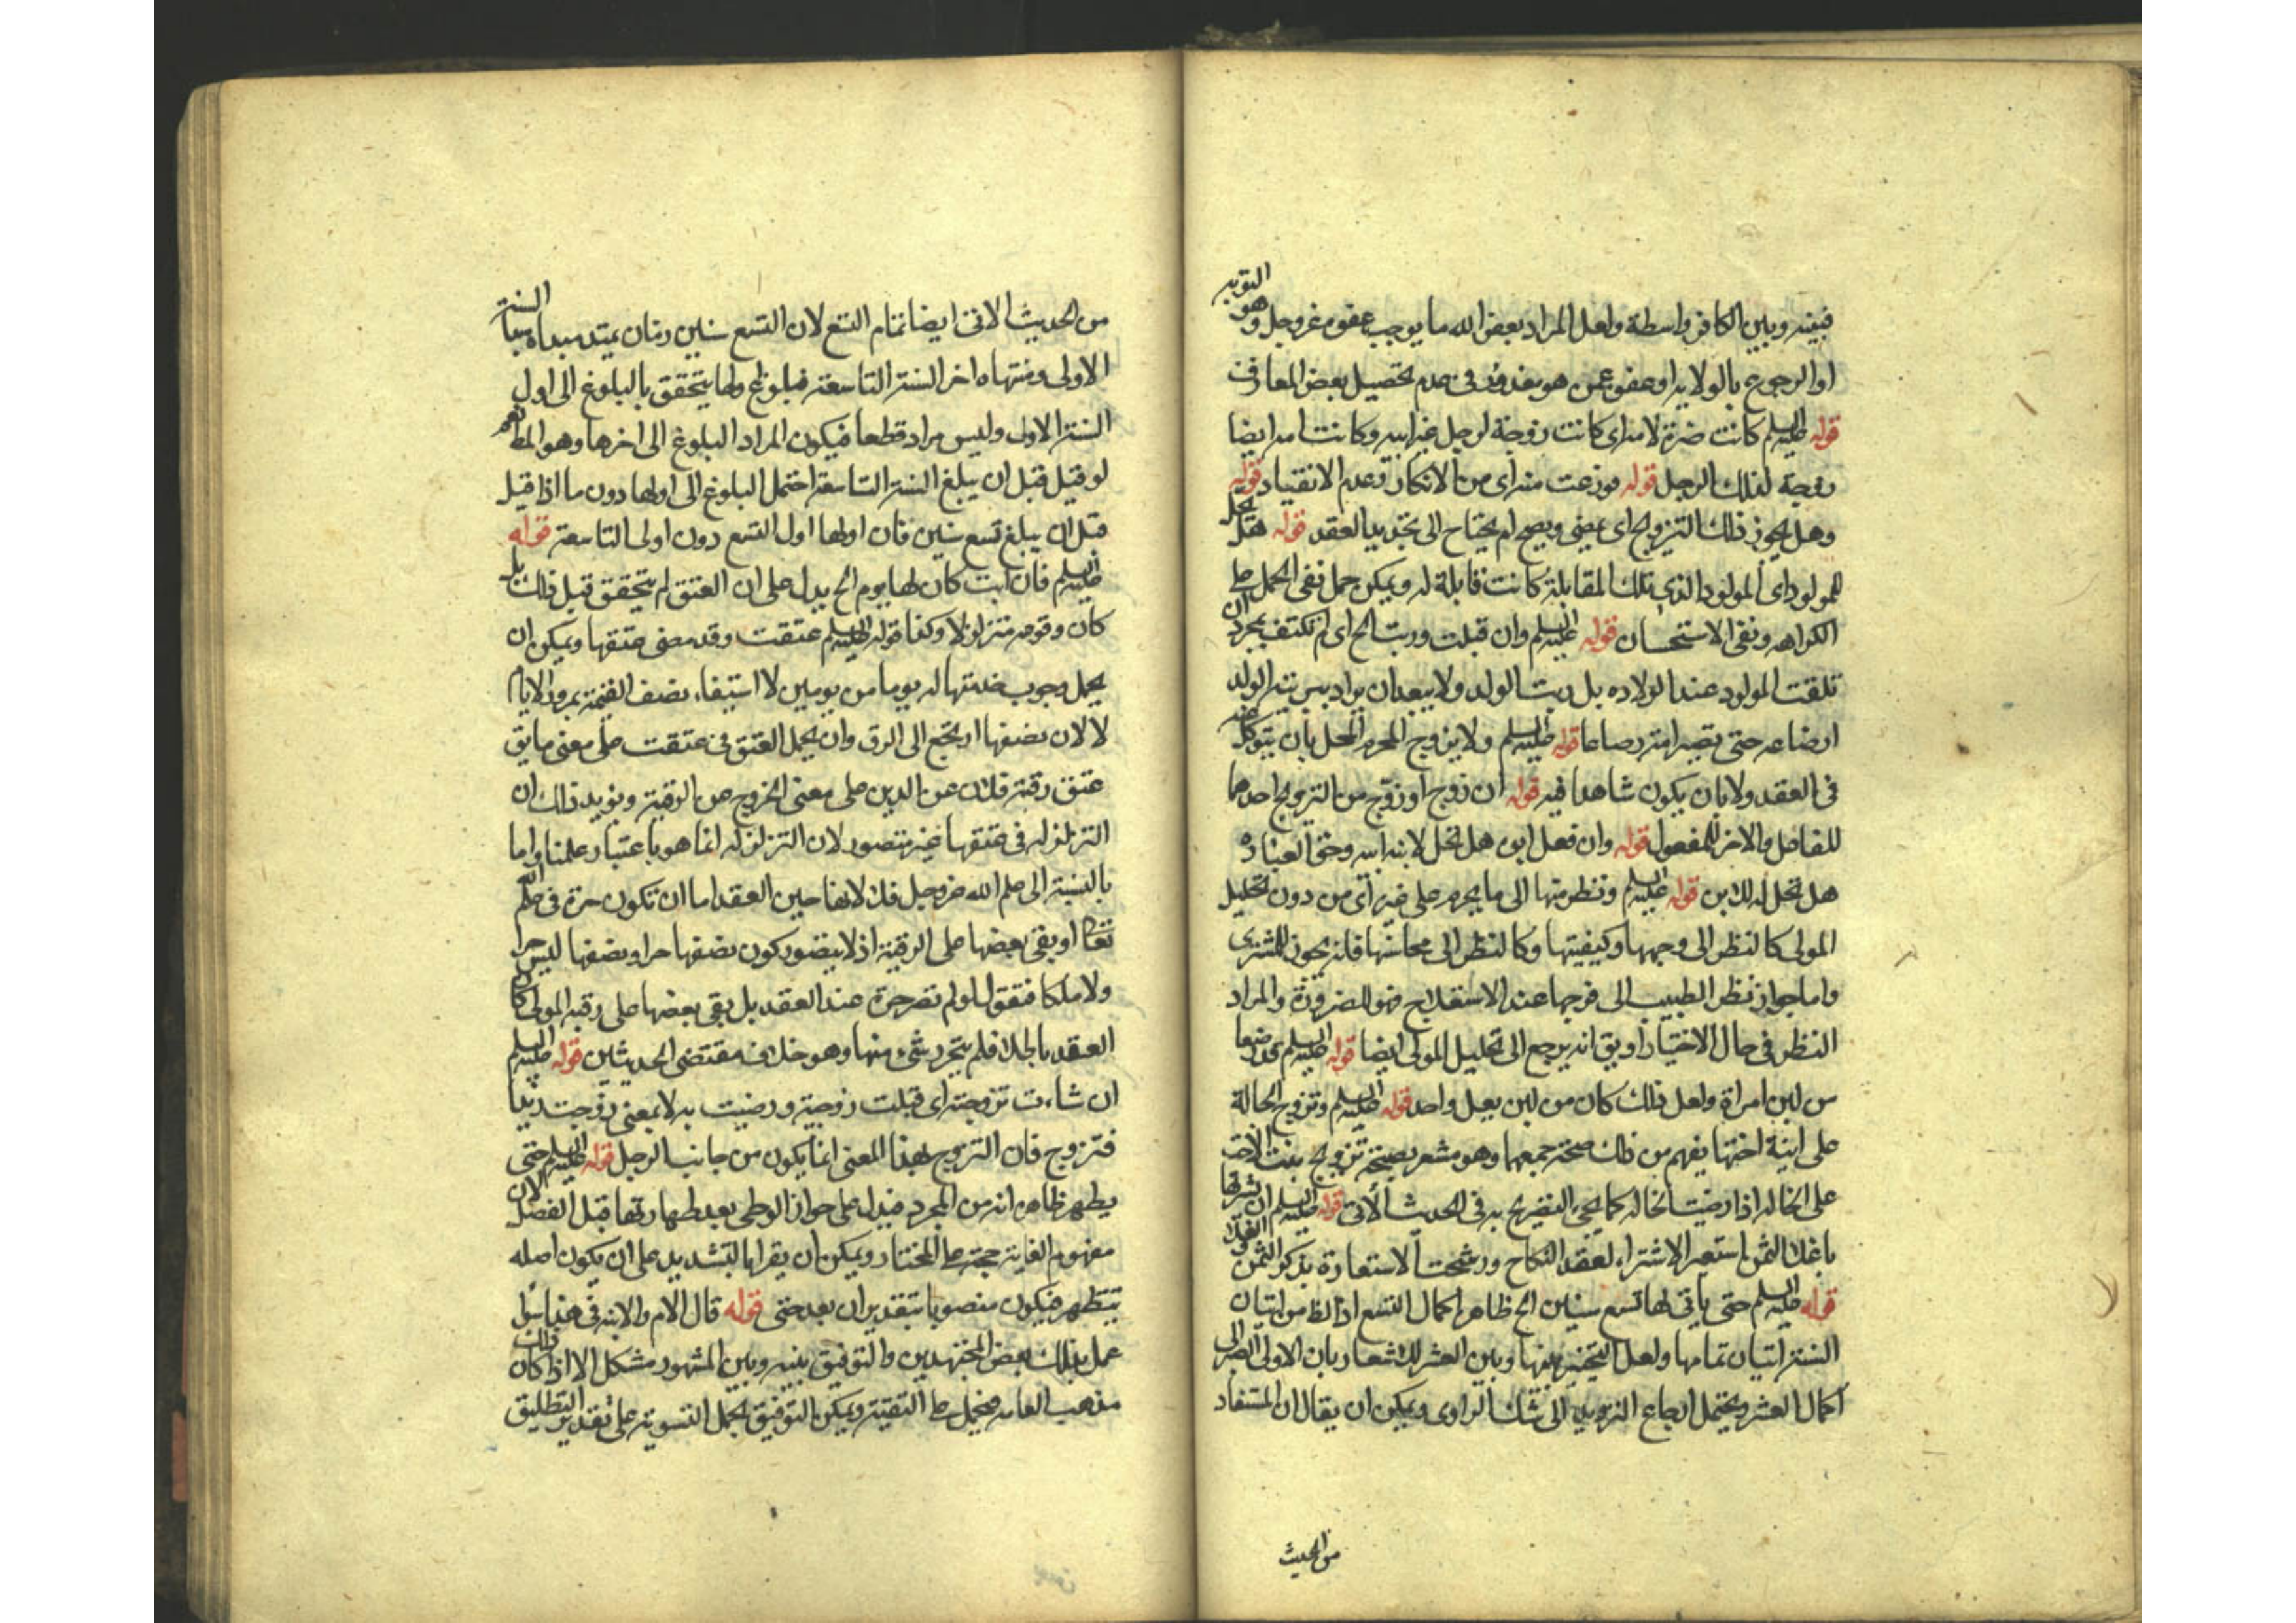 فبينه وبين الكافر واسطة ولعل المراد ببعض الله ما يوجب عفوه عز وجل وهو التوبه
او الرجوع بالولاية او عفو عمن هو معذور فى عدم تحصيل بعض المعارف
قوله عليه السلم كانت ضرة لامه اى كانت زوجة لرجل غير ابيه وكانت امه ايضا
زوجة لذلك الرجل قوله فوزعت منه اى من الانكار وعدم الانقياد قوله
وهل يجوز ذلك التزويج اى يمضى ويصح ام يحتاج الى تجديد العقد قوله هل تحل
للمولود اى المولود الذى تلك المقابلة كانت قابلة له ويمكن حمل نفى الحمل على
الكراهه ونفى الاستحسان قوله عليه السلم وان قبلت وربت الخ اى لم تكتف بمجرد ان
تلقت المولود عند الولاده بل ربت الولد ولا يبعد ان يراد بتربيته الولد
ارضاعه حتى تصير امه رضاعا قوله عليه السلم ولا يزوج المحرم المحل بان يتوكل عنه
فى العقد ولا بان يكون شاهدا فيه قوله ان زوج او زوّج من التزويج احدهما
للفاعل والاخر للمفعول قوله وان فعل ابوه هل تحل لابنه اسه وحق العبارة
هل تحل له لابن قوله عليه السلم وننظر منها الى ما يحرم على غيره اى من دون تحليل
المولى كالنظر الى وجهها وكيفيتها وكالنظر الى محاسنها فانه يجوز للمشترى
واما جواز نظر الطبيب الى فرجها عند الاستعلاج فهو للضرورة والمراد
النظر فى حال الاختيار او يق انه يرجع الى تحليل المولى ايضا قوله عليه السلم رضعا
من لبن امراة ولعل ذلك كان من لبن بعل واحد قوله عليه السلم وتزوج الخالة
على ابنة اختها يفهم من ذلك صحة جمعهما وهو مشعر بصحة تزويج بنت الاخت
على الخاله اذا رضيت الخاله كما يجىء التصريح به فى الحديث الاتى قوله عليه السلم ان يشتريها
باغلا الثمن استعير الاشتراء لعقد النكاح ورشحت الاستعارة بذكر الثمن
قوله عليه السلم حتى ياتى لها تسع سنين الخ ظاهره اكمال التسع اذ الظ من اتيان
السنة اتيان تمامها ولعل التخيير بينها وبين العشر للاشعار بان الاولى الصبر الى
اكمال العشر ويحتمل ارجاع الترديد الى شك الراوى ويمكن ان يقال ان المستفاد
من الحديث
من الحديث الاتى ايضا تمام التسع لان التسع سنين زمان يمتد مبداه مبدا السنة
الاولى ومنتهاه اخر السنة التاسعة فبلوغ اولها يتحقق بالبلوغ الى اول
السنة الاولى وليس مراد قطعا فيكون المراد البلوغ الى اخرها وهو المط نعم
لو قيل قبل ان يبلغ السنة التاسعة احتمل البلوغ الى اولها دون ما اذا قيل
قبل ان يبلغ تسع سنين فان اولها اول التسع دون اولى التاسعة قوله
عليه السلم فان ابت كان لها يوم الخ يدل على ان العتق لم يتحقق قبل ذلك بل
كان وقوعه متزلزلا وكذا قوله عليه السلم عتقت وقد مضى عتقها ويمكن ان
يحمل وجوب خدمتها له يوما من يومين لا استيفاء نصف القيمة بمرور الايام
لا لان نصفها ارتجع الى الرق وان يحمل العتق فى عتقت على معنى ما يق
عتق رقبة فلان عن الدين على معنى الخروج عن الرقية ويؤيد ذلك ان
التزلزل فى عتقها غير متصور لان التزلزل انما هو باعتبار علمنا واما
بالنسبة الى علم الله عز وجل فلا لانها حين العقد اما ان تكون حرة فى علم الله
تعالى او بقى بعضها على الرقية اذ لا يتصور كون نصفها حرا ونصفها ليس حرا
ولا ملكا فنقول لو لم تصر حرة عند العقد بل بقى بعضها على رقية المولى كان
العقد باطلا فلم يتحرر شىء منها وهو خلاف مقتضى الحديثين قوله عليه السلم
ان شاءت تزوجته اى قبلت زوجيته ورضيت به لا بمعنى زوجت زيدا
فتزوج فان التزوج بهذا المعنى انما يكون من جانب الرجل قوله عليه السلم حتى
يطهر ظاهره انه من المجرد فيدل على جواز الوطى بعد طهارتها قبل الغسل لان
مفهوم الغاية حجة على المختار ويمكن ان يقرا بالتشديد على ان يكون اصله
تتطهر فيكون منصوبا بتقدير ان بعد حتى قوله قال الام والابنه فى هذا سواء
عمل بذلك بعض المجتهدين والتوفيق بينه وبين المشهور مشكل الا اذا كان ذلك
مذهب العامه فيحمل على التقية ويمكن التوفيق بحمل التسوية على تقدير التطليق